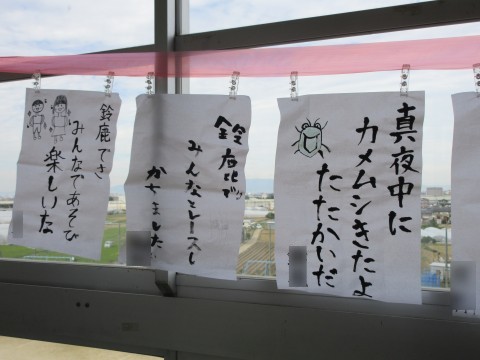 真夜中に
カメムシきたよ
たたかいだ
鈴鹿でッ
みんなとレースし
かちました
鈴鹿でさ
みんなであそび
楽しいな